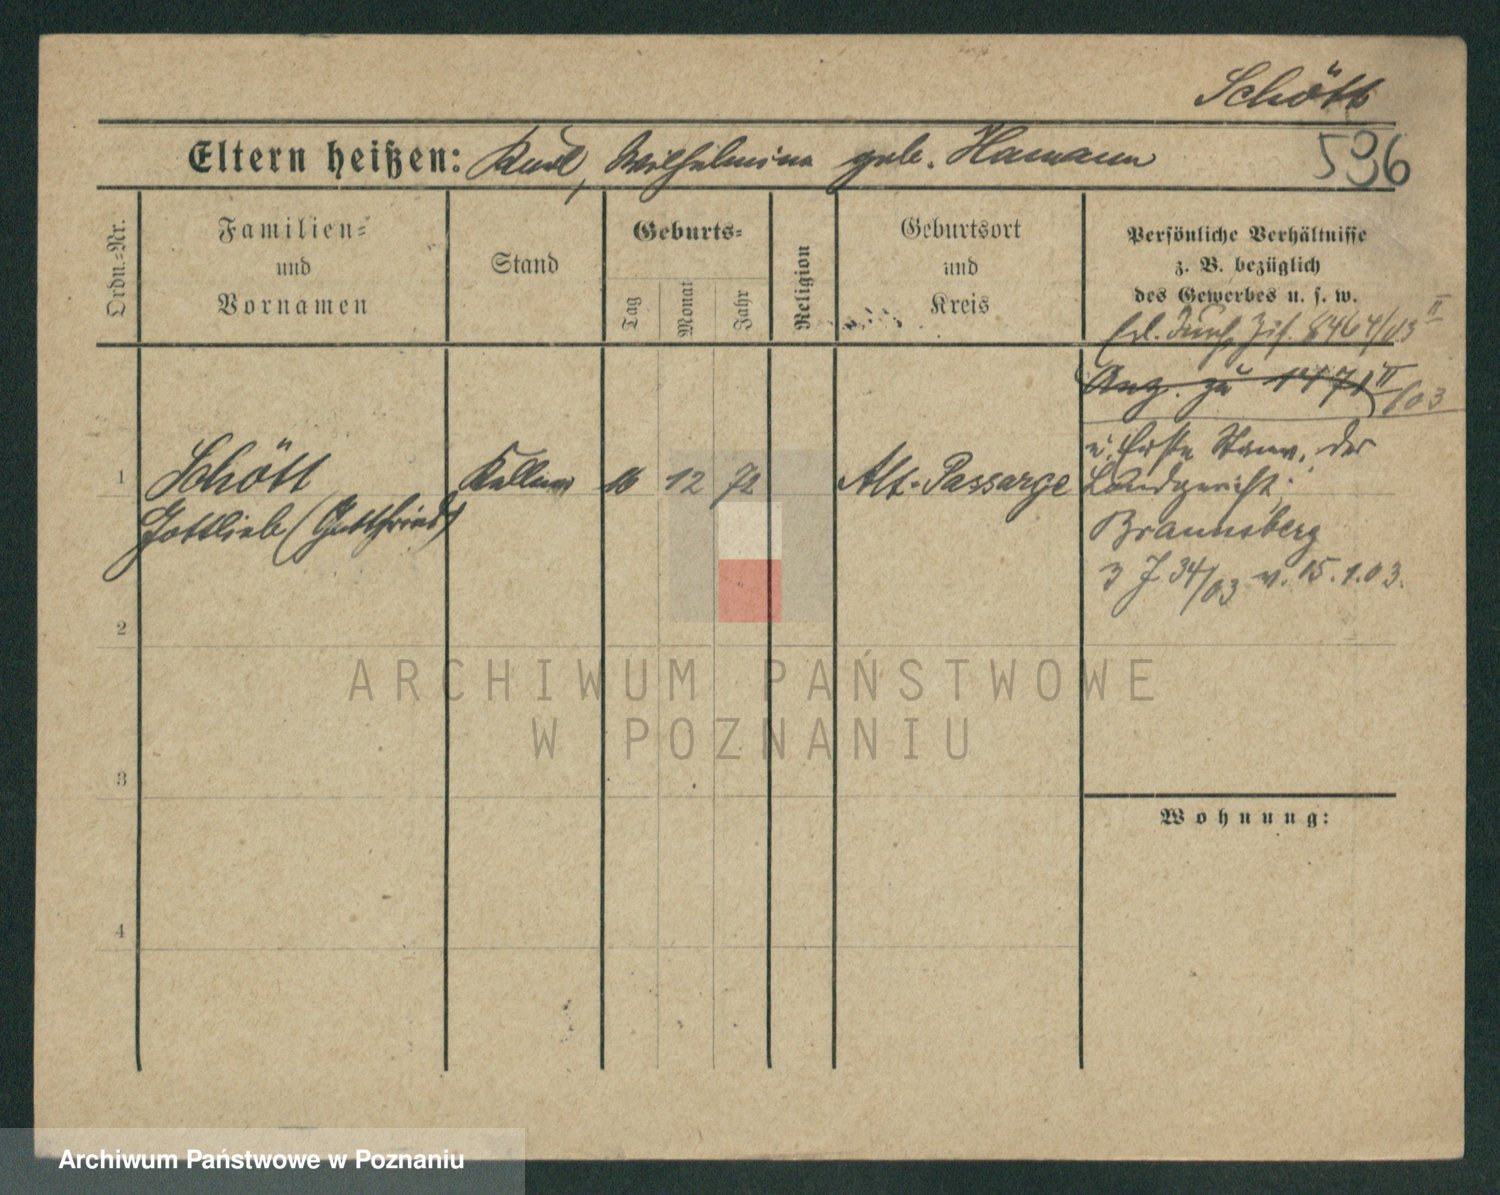 Schött
Eltern heißen: Karl, Wilhelmina geb. Hamann
596
Ordn.-Nr.
Familien-
und
Vornamen
Stand
Geburts-
Tag
Monat
Jahr
Religion
Geburtsort
und
Kreis
Persönliche Verhältnisse
z. B. bezüglich
des Gewerbes u. s. w.
durch 8467/03 II
Ang. zu 1471 II/03
1
Schött
Gottlieb (Gottfried)
Kellner
16
12
72
Alt-Passarge
Landgericht
Braunsberg
3 J 34/03 v. 15.1.03.
2
3
4
Wohnung:
ARCHIWUM PAŃSTWOWE
W POZNANIU
Archiwum Państwowe w Poznaniu